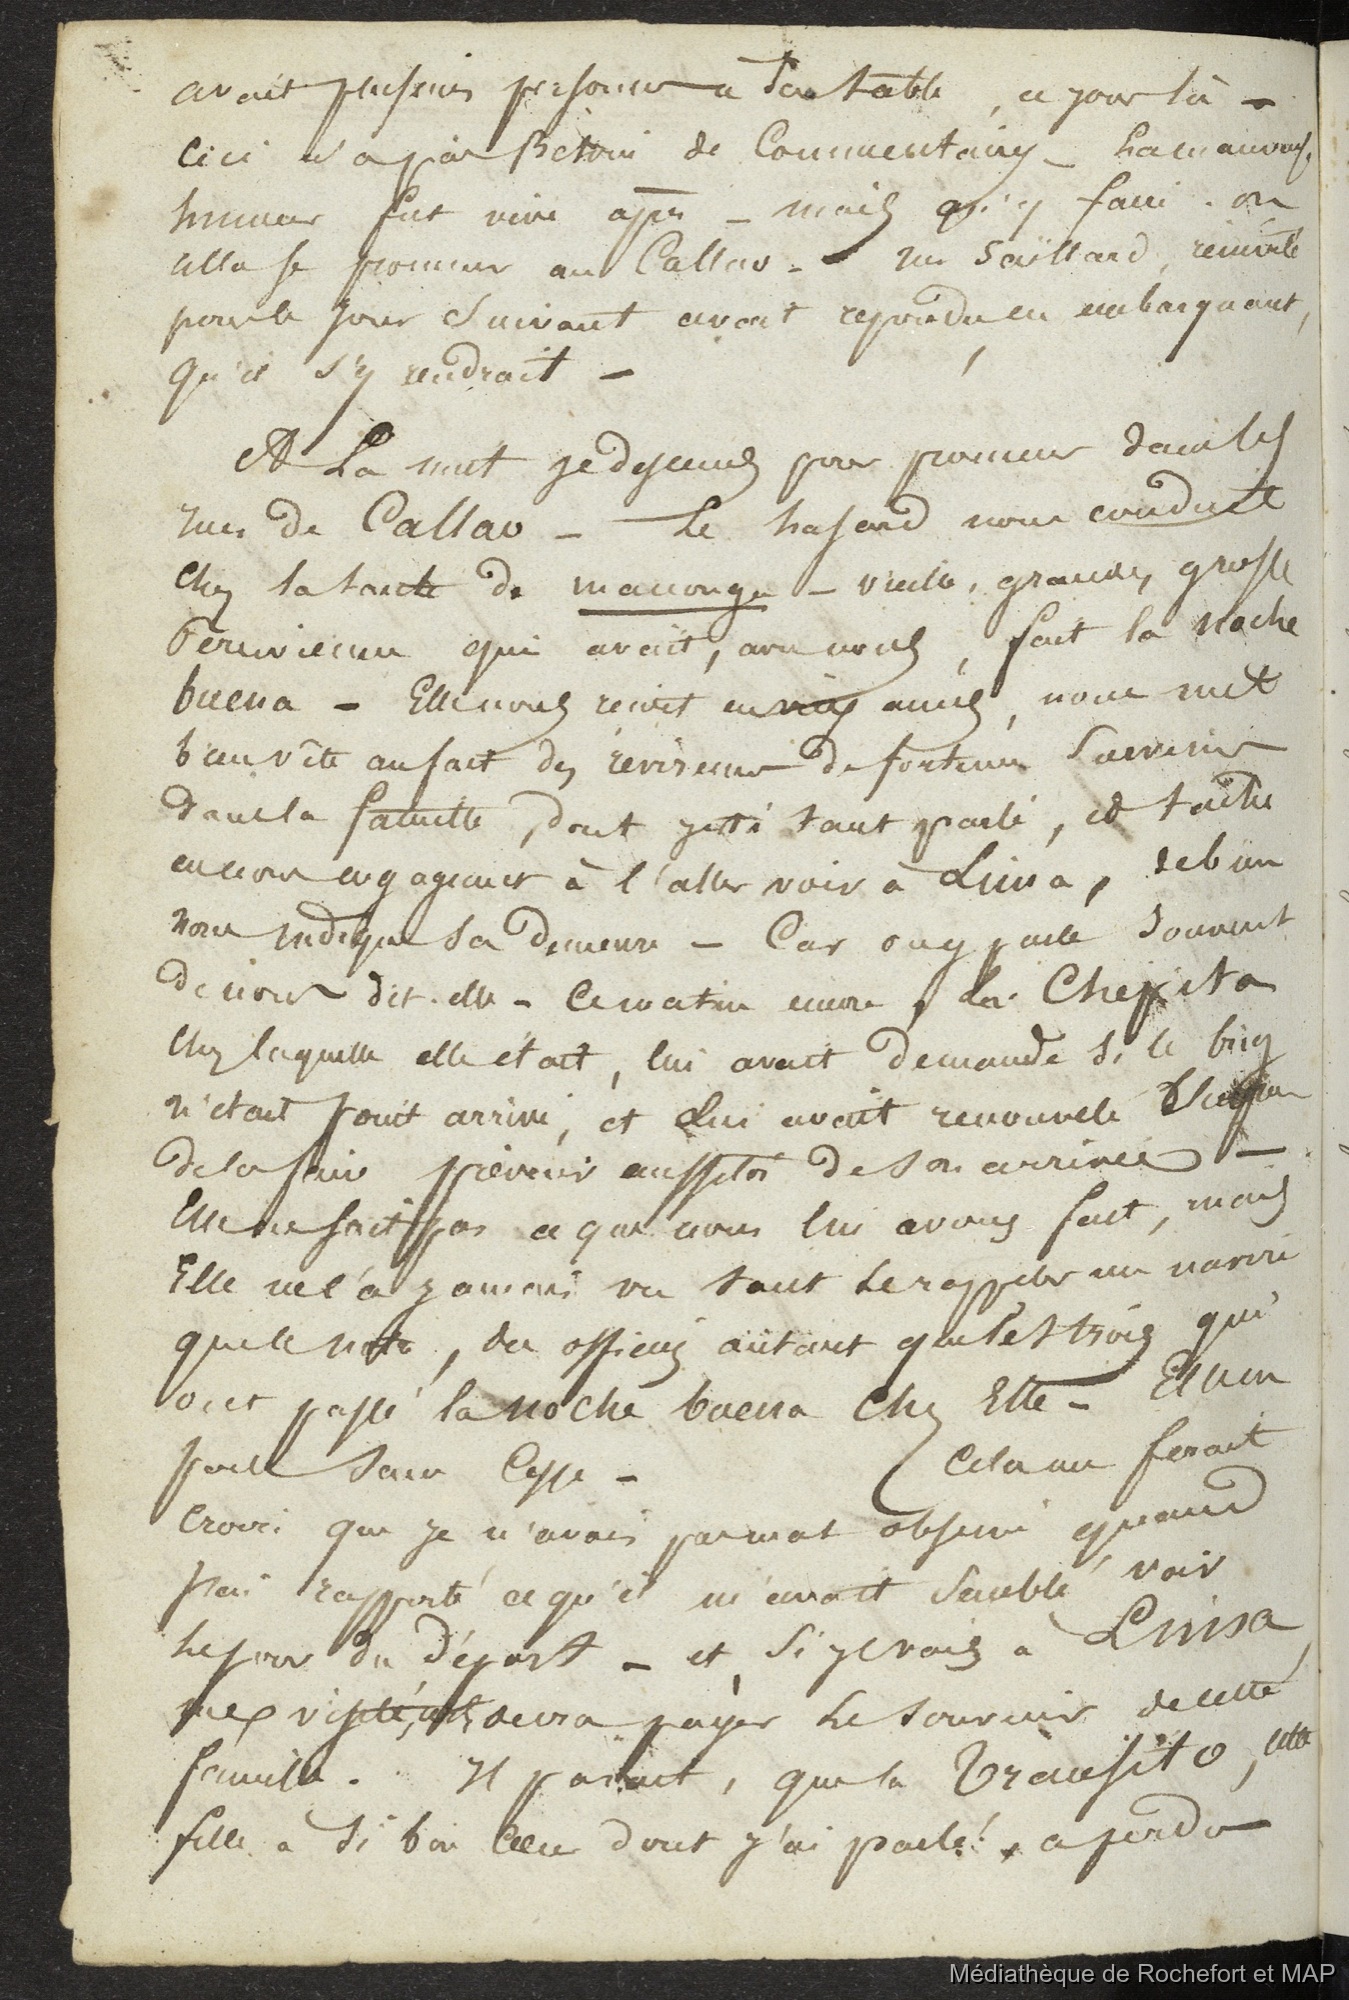 avait plusieurs personnes à sa table, ce jour là -
Ceci n'a pas besoin de Commentaires - La mauvaise
humeur fut vive après - mais qu'y faire. on
alla se promener au Callao - Mr Saillard, réinvité
pour le jour Suivant avait répondu en embarquant,
qu'il s'y rendrait -
A La nuit je descends pour promener dans les
rues de Callao - Le hasard nous conduit
Chez la tante de - vieille, grande, grosse
Péruvienne qui avait, avec nous, fait la noche
buena - Elle nous reçoit en amis, nous met
bien vîte au fait des revirements de fortune survenus
dans la famille, dont j'ai tant parlé, et tache
encore engageant à l'aller voir à Lima,
nous indique sa demeure - Car on y parle Souvent
de nous dit-elle - Ce matin encore, la Chepita
Chez laquelle elle était, lui avait demandé si le brig
n'était point arrivé, et lui avait renouvelé
de la faire prévenir aussitôt de son arrivée -
Elle ne sait pas ce que nous lui avons fait, mais
Elle ne l'a jamais vu tant se rappeler un navire
que le notre, des officiers autant que les trois qui
ont passé la noche buena Chez Elle - Elle en
parle sans Cesse - Cela me ferait
Croire que je n'avais pas mal observé quand
j'ai rapporté ce qu'il m'avait Semblé voir
le jour du départ - et, Si je vais à Lima,
devra payer le souvenir de cette
famille. Il parait, que la Transito, cette
fille à si bon Cœur dont j'ai parlé, a perdu
Médiathèque de Rochefort et MAP